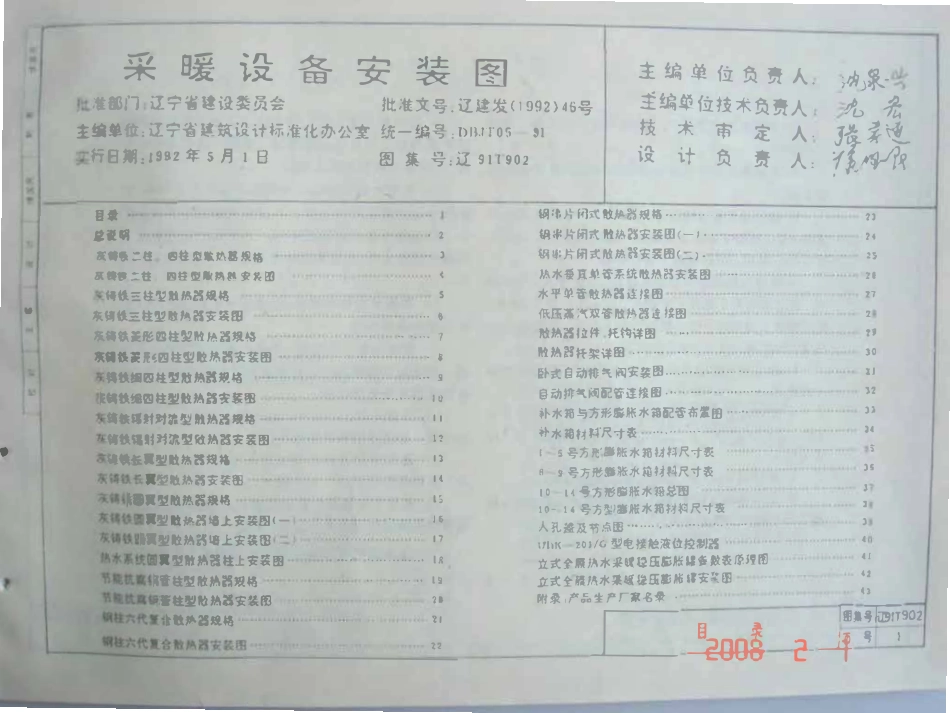 采暖设备安装图
批准部门:辽宁省建设委员会
批准文号:辽建发(1992)46号
主编单位:辽宁省建筑设计标准化办公室
统一编号:DBJT05-91
实行日期:1992年5月1日
图集号:辽91T902
主编单位负责人:
主编单位技术负责人:沈宏
技术审定人:
设计负责人:
目录 1
总说明 2
灰铸铁二柱、四柱型散热器规格 3
灰铸铁二柱、四柱型散热器安装图 4
灰铸铁三柱型散热器规格 5
灰铸铁三柱型散热器安装图 6
灰铸铁菱形四柱型散热器规格 7
灰铸铁菱形四柱型散热器安装图 8
灰铸铁细四柱型散热器规格 9
灰铸铁细四柱型散热器安装图 10
灰铸铁辐射对流型散热器规格 11
灰铸铁辐射对流型散热器安装图 12
灰铸铁长翼型散热器规格 13
灰铸铁长翼型散热器安装图 14
灰铸铁圆翼型散热器规格 15
灰铸铁圆翼型散热器墙上安装图(一) 16
灰铸铁圆翼型散热器墙上安装图(二) 17
热水系统圆翼型散热器柱上安装图 18
节能抗腐铜管柱型散热器规格 19
节能抗腐铜管柱型散热器安装图 20
钢柱六代复合散热器规格 21
钢柱六代复合散热器安装图 22
钢串片闭式散热器规格 23
钢串片闭式散热器安装图(一) 24
钢串片闭式散热器安装图(二) 25
热水垂直单管系统散热器安装图 26
水平单管散热器连接图 27
低压蒸汽双管散热器连接图 28
散热器拉件、托钩详图 29
散热器托架详图 30
卧式自动排气阀安装图 31
自动排气阀配管连接图 32
补水箱与方形膨胀水箱配管布置图 33
补水箱材料尺寸表 34
1-5号方形膨胀水箱材料尺寸表 35
6-9号方形膨胀水箱材料尺寸表 36
10-14号方形膨胀水箱总图 37
10-14号方型膨胀水箱材料尺寸表 38
人孔盖及节点图 39
UDK-203/G型电接触液位控制器 40
立式全膜热水采暖稳压膨胀罐参数表原理图 41
立式全膜热水采暖稳压膨胀罐安装图 42
附录:产品生产厂家名录 43
目录
图集号 辽91T902
页号 1
2008 2 1